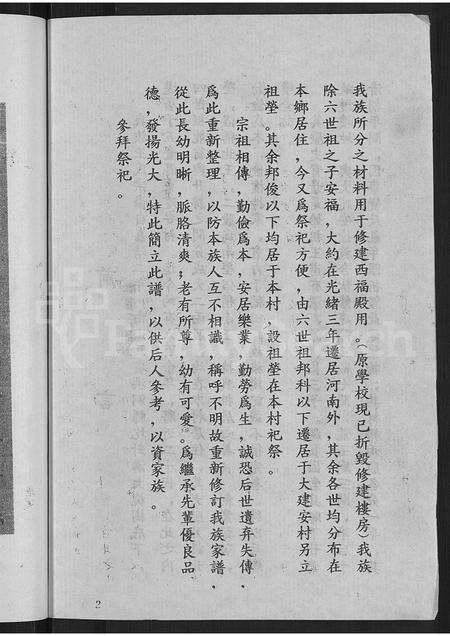 我族所分之材料用于修建西福殿用。（原學校現已折毀修建樓房）我族
除六世祖之子安福，大約在光緒三年遷居河南外，其余各世均分布在
本鄉居住，今又爲祭祀方便，由六世祖邦科以下遷居于大建安村另立
祖塋。其余邦俊以下均居于本村，設祖塋在本村祀祭。
宗祖相傳，勤儉爲本，安居樂業，勤勞爲生，誠恐后世遺弃失傳．
爲此重新整理，以防本族人互不相識，稱呼不明故重新修訂我族家譜．
從此長幼明晰，脈胳清爽；老有所尊，幼有可愛。爲繼承先輩優良品
德，發揚光大，特此簡立此譜，以供后人參考，以資家族。
參拜祭祀。
2